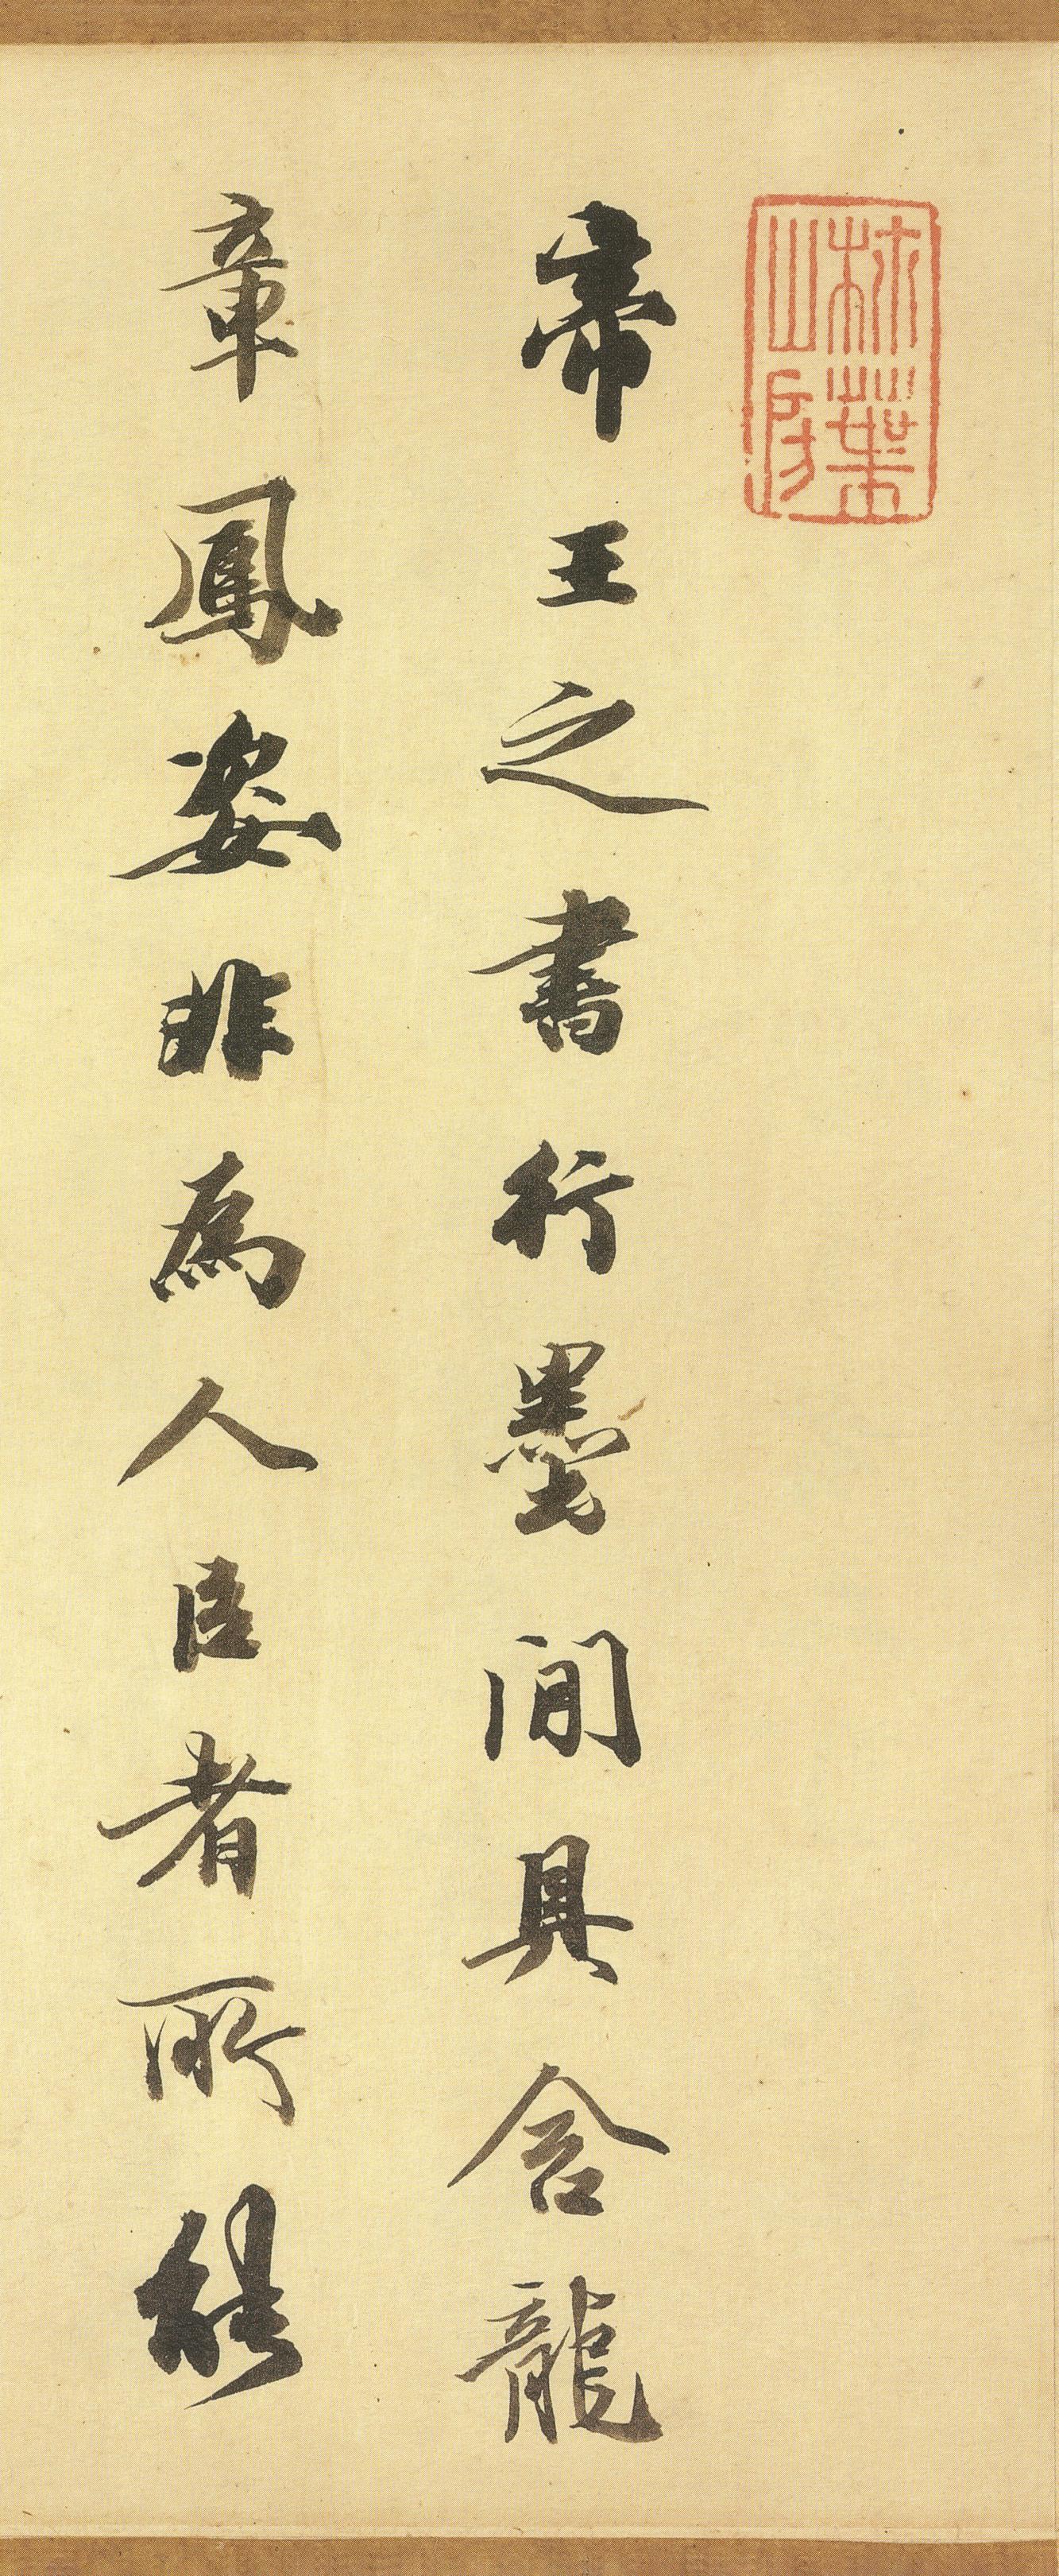 林葉
山房
帝王之書行墨間具含龍
章鳳姿非為人臣者所能